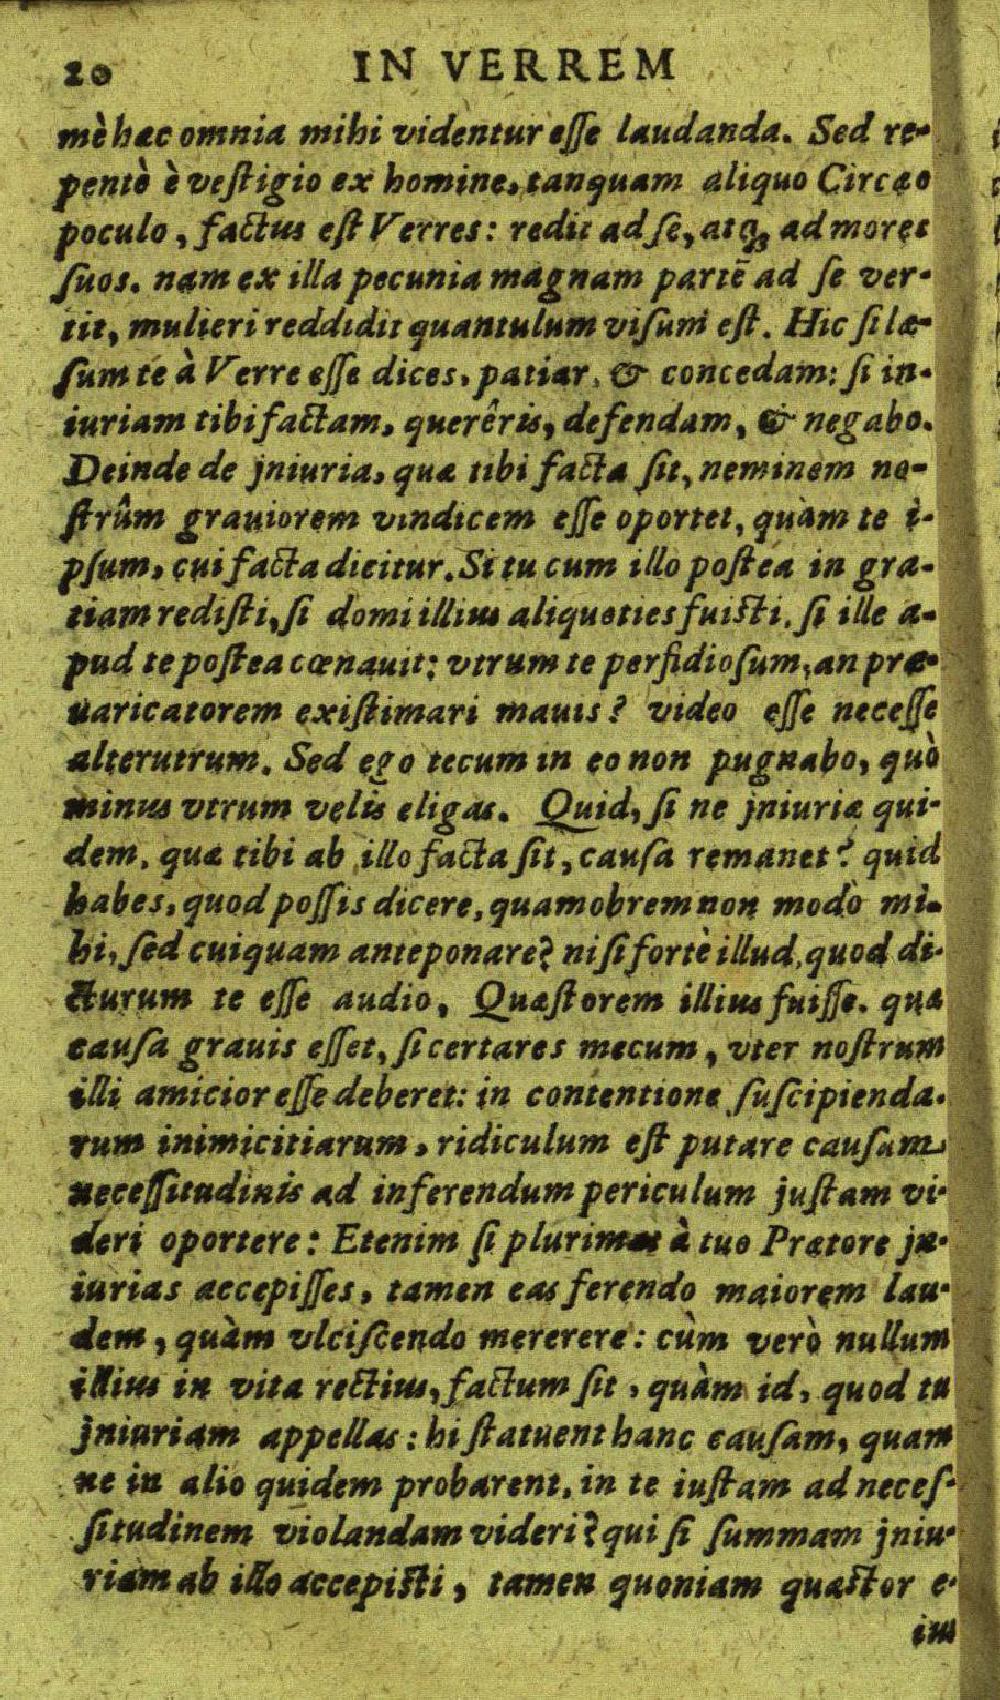 20 IN VERREM
mè hæc omnia mihi videntur eſſe laudanda. Sed re-
pentè è veſtigio ex homine, tanquam aliquo Circæo
poculo, factus eſt Verres: redit ad ſe, atq; ad mores
ſuos. nam ex illa pecunia magnam partē ad ſe ver-
tit, mulieri reddidit quantulum viſum eſt. Hic ſi læ-
ſum te à Verre eſſe dices, patiar, & concedam: ſi in-
iuriam tibi factam, querêris, defendam, & negabo.
Deinde de jniuria, quæ tibi facta ſit, neminem no-
ſtrûm grauiorem vindicem eſſe oportet, quàm te i-
pſum, cui facta dicitur. Si tu cum illo poſtea in gra-
tiam rediſti, ſi domi illius aliquoties fuiſti, ſi ille a-
pud te poſtea cœnauit: vtrum te perfidioſum, an præ-
uaricatorem exiſtimari mauis? video eſſe neceſſe
alterutrum. Sed ego tecum in eo non pugnabo, quò
minus vtrum velis eligas. Quid, ſi ne jniuriæ qui-
dem, quæ tibi ab illo facta ſit, cauſa remanet? quid
habes, quod poſſis dicere, quamobrem non modò mi-
hi, ſed cuiquam anteponare? niſi fortè illud, quod di-
cturum te eſſe audio, Quæſtorem illius fuiſſe. quæ
cauſa grauis eſſet, ſi certares mecum, vter noſtrum
illi amicior eſſe deberet: in contentione ſuſcipienda-
rum inimicitiarum, ridiculum eſt putare cauſam
neceſſitudinis ad inferendum periculum juſtam vi-
deri oportere: Etenim ſi plurimas à tuo Prætore jn-
iurias accepiſſes, tamen eas ferendo maiorem lau-
dem, quàm vlciſcendo mererere: cùm verò nullum
illius in vita rectius, factum ſit, quàm id, quod tu
jniuriam appellas: hi ſtatuent hanc cauſam, quam
ne in alio quidem probarent, in te iuſtam ad neceſ-
ſitudinem violandam videri? qui ſi ſummam jniu-
riam ab illo accepiſti, tamen quoniam quæſtor e-
ius